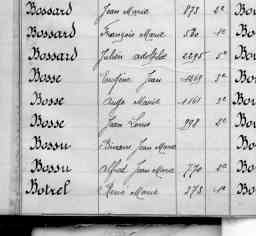 Bossard Jean Marie 873 2e
Bossard François Marie 580 1e
Bossard Julien Adolphe 2295 5e
Bosse Eugène Jean 1269 3e
Bosse Ange Marie 1161 3e
Bosse Jean Louis 998 2e
Bossu Jean Marie
Bossu Alfred Jean Marie 770 2e
Botrel René Marie 273 1e